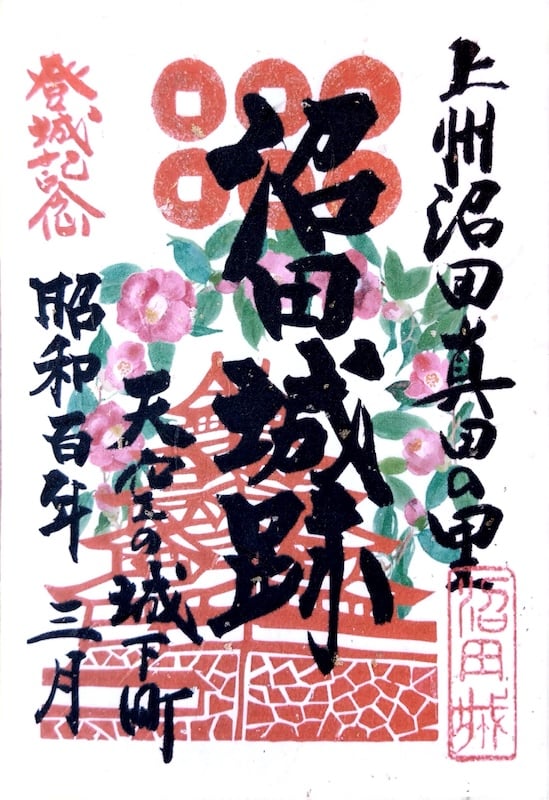 上州沼田真田の里
沼田城跡
天空の城下町
昭和百年 三月
登城記念
沼田城